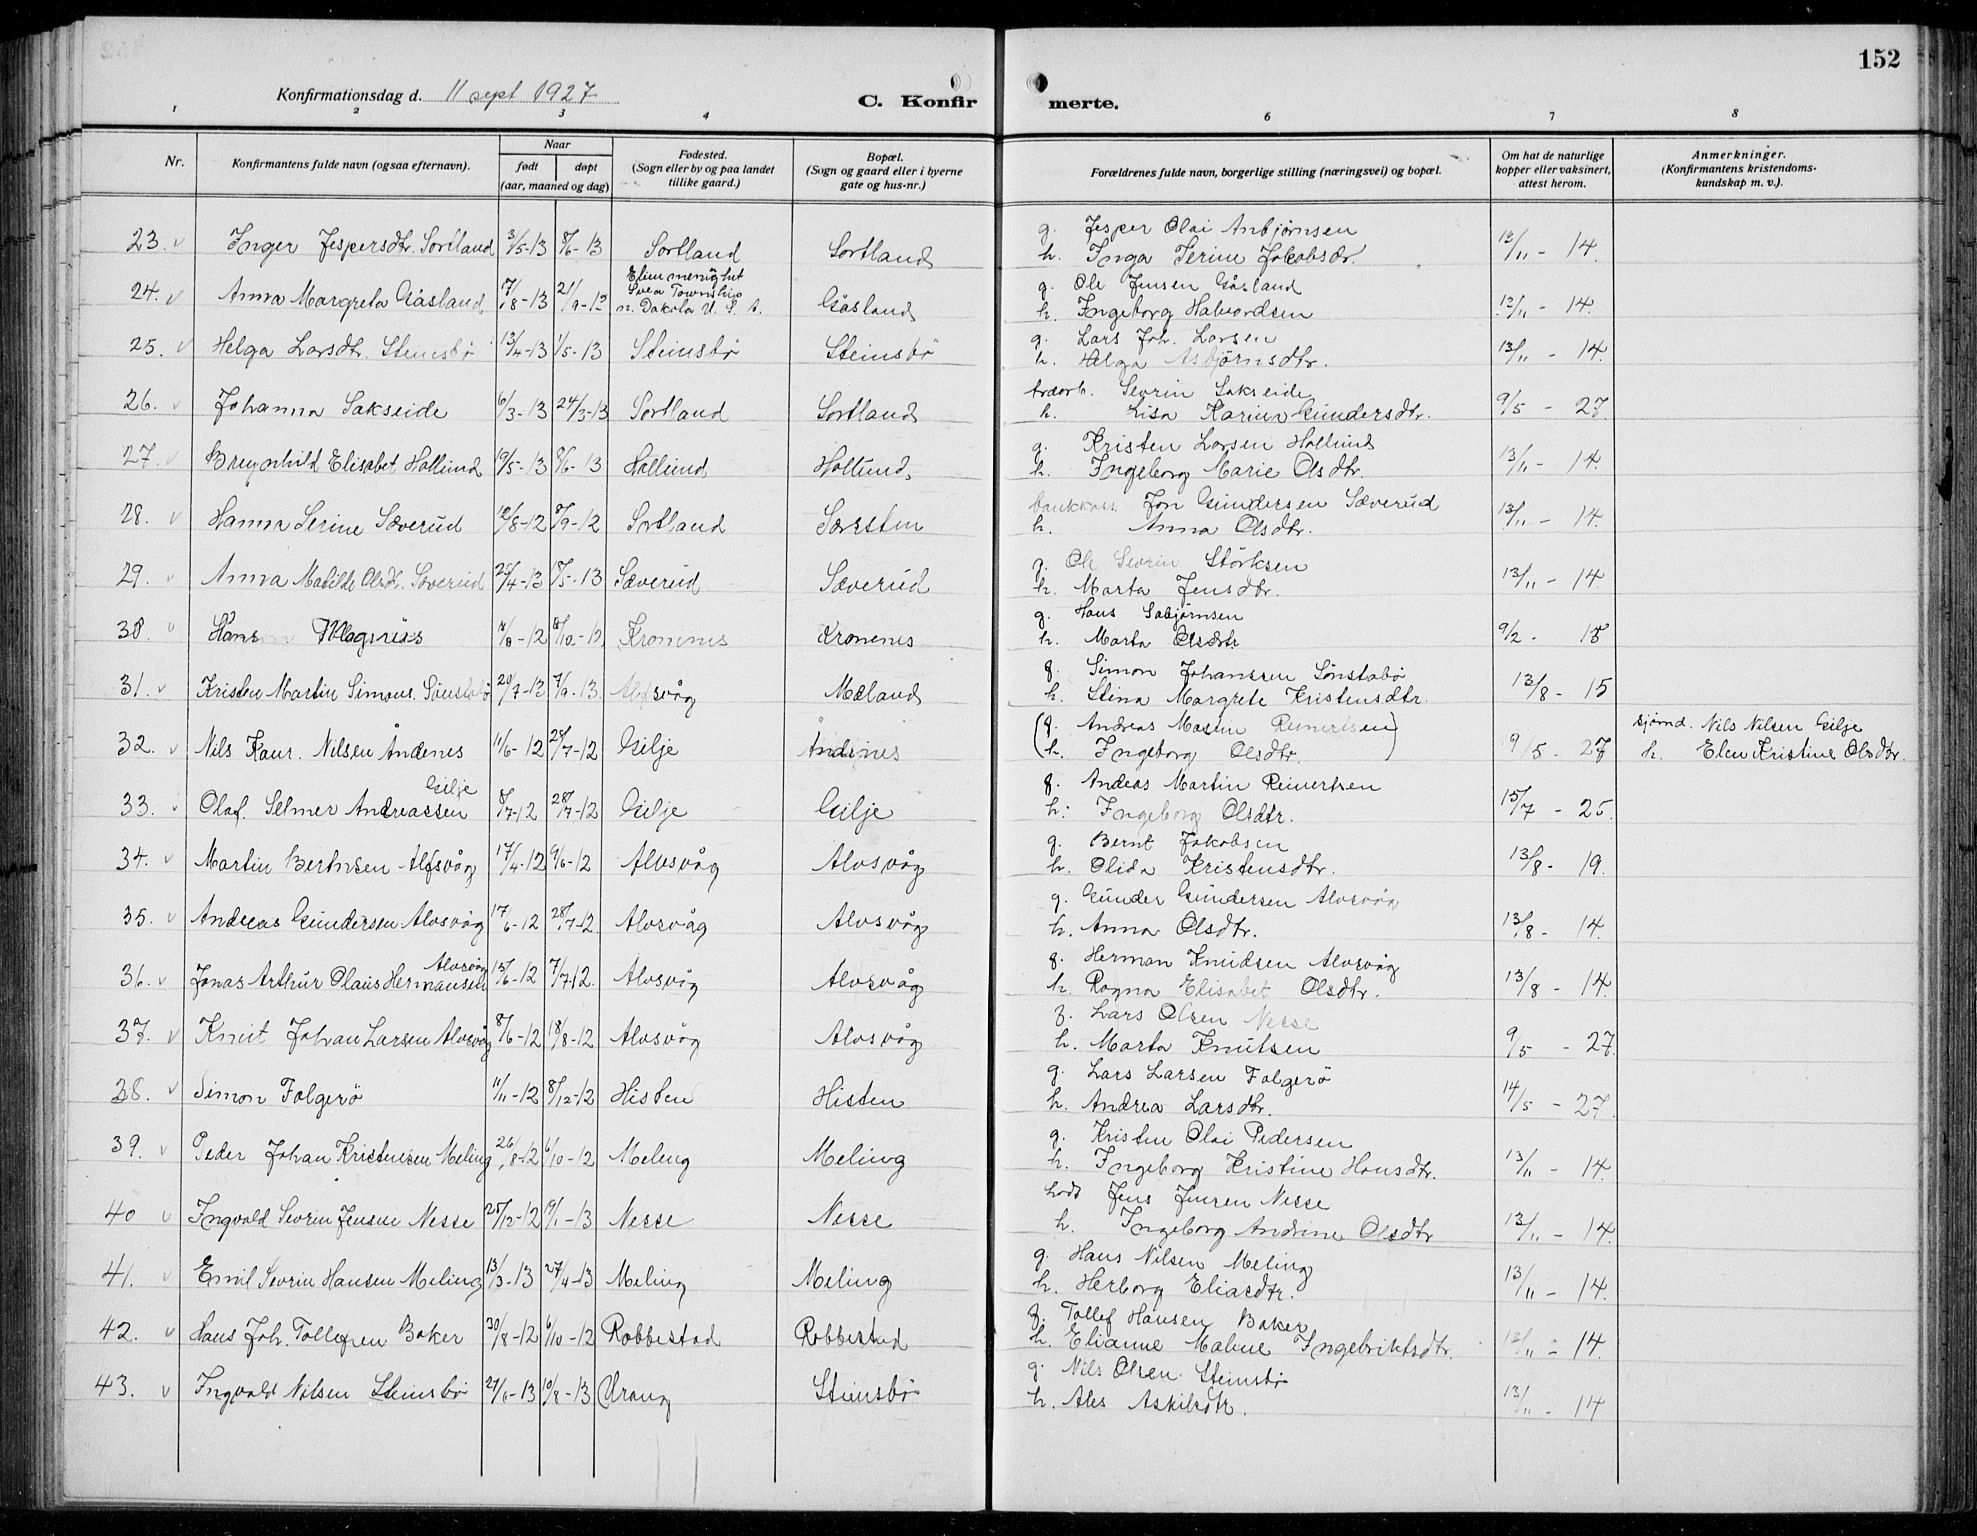 152
Konfirmationsdag d. 11 sept 1927
C. Konfir merte.
1 2 3 4 5 6 7 8
Nr.
Konfirmantens fulde navn (ogsaa efternavn).
Naar
født døpt
(aar, maaned og dag)
Fødested.
(Sogn eller by og paa landet
tillike gaard.)
Bopæl.
(Sogn og gaard eller i byerne
gate og hus-nr.)
Forældrenes fulde navn, borgerlige stilling (næringsvei) og bopæl.
Om hat de naturlige
kopper eller vaksinert,
attest herom.
Anmerkninger.
(Konfirmantens kristendoms-
kundskap m. v.).
g. Jesper Olai Anbjørnsen
23. v Inger Jespersdtr. Sortland 3/5-13 8/6-13 Sortland Sortland h. Inga Serine Jakobsdr. 13/11 - 14.
Elim menighet
g. Ole Jensen Gåsland
24. v Anna Margreta Gåsland 17/8-13 21/9-13 Svea Township
n. Dakota U. S. A. Gåsland h. Ingeborg Halvordsen 13/11 - 14.
g. Lars Joh. Larsen
25. v Helga Larsdtr. Steinsbø 13/4-13 1/5-13 Steinsbø Steinsbø h. Helga Asbjørnsdtr. 13/11 - 14.
Sevrin Sakseide
26. v Johanna Sakseide 6/3-13 24/3-13 Sortland Sortland h. Lisa Karina Gundersdtr. 9/5 - 27.
g. Kristen Larsen Hollund
27. v Brynhild Elisabet Hollund 19/5-13 8/6-13 Hollund Hollund h. Ingeborg Marie Olsdtr. 13/11 - 14.
Jon Gundersen Sæverud
28. v Hanna Serine Sæverud 12/8-12 8/9-12 Sortland h. Anna Olsdtr. 13/11 - 14.
g. Ole Sevrin Størksen
29. v Anna Matilde Olsdt. Sæverud 25/4-13 18/5-13 Sæverud Sæverud h. Marta Jensdtr. 13/11 - 14.
g. Hans Sabjørnsen
30. v Hans Magnus 8/10-12 Kronenes Kronenes h. Marta Olsdtr 9/2 - 15
g. Simon Johanssen Sønstabø
31. v Kristen Martin Simons. Sønstabø 20/7-13 7/9-13. Alfsvåg Mæland h. Stina Margrete Kristensdtr. 13/8 - 15
(g. Andreas Martin Reinertsen) sjømd. Nils Nilsen Gilje
32. v Nils Kaur. Nilsen Åndenes 11/6-12 28/7-12 Gilje Åndenes (h. Ingeborg Olsdtr.) 9/5 - 27 h. Elen Kristine Olsdtr.
g. Andeas Martin Reinertsen
Gilje
33. v Olaf Selmer Andreassen 8/7-12 28/7-12 Gilje Gilje h: Ingeborg Olsdtr. 15/7 - 25.
g. Bernt Jakobsen
34. v Martin Berntsen Alfsvåg 17/4-12 9/6-12 Alvsvåg Alvsvåg h. Olida Kristensdtr. 13/8 - 19.
g. Gunder Gundersen Alvsvåg
35. v Andreas Gundersen Alvsvåg 17/6-12 28/7-12. Alvsvåg Alvsvåg h. Anna Olsdtr. 13/8 - 14.
g. Herman Knudsen Alvsvåg
Alvsvåg
36. v Jonas Arthur Olaus Hermansen 15/6-12 7/7-12. Alvsvåg Alvsvåg h. Ragna Elisabet Olsdtr. 13/8 - 14.
g. Lars Olsen Nesse
37. v Knut Johan Larsen Alvsvåg 8/6-12 18/8-12 Alvsvåg Alvsvåg h. Marta Knutsen 9/5 - 27.
g. Lars Larsen Folgerø
38. v Simon Folgerø 11/11-12 8/12-12 Histen Histen h. Andrea Larsdtr. 14/5 - 27.
g. Kristen Olai Pedersen
39. v Peder Johan Kristensen Meling 26/8-12 6/10-12 Meling Meling h. Ingeborg Kristine Hansdtr. 13/11 - 14.
Jens Jensen Nesse
40 v Ingvald Sevrin Jensen Nesse 25/12-12 19/1-13 Nesse Nesse h. Ingeborg Andrine Olsdtr 13/11 - 14.
g. Hans Nilsen Meling
41. v Emil Sevrin Hansen Meling 13/3-13 27/4-13 Meling Meling h. Herborg Eliasdtr. 13/11 - 14.
g. Tollef Hansen Baker
42. v Hans Joh. Tollefsen Baker 30/8-12 6/10-12 Robbestad Robbestad h. Elianne Malene Ingebriktsdtr. 13/11 - 14.
g Nils Olsen Steinsbø
43. v Ingvald Nilsen Steinsbø 27/6-13 10/8-13 Urang Steinsbø h. Ales Askilsdtr. 13/11 - 14